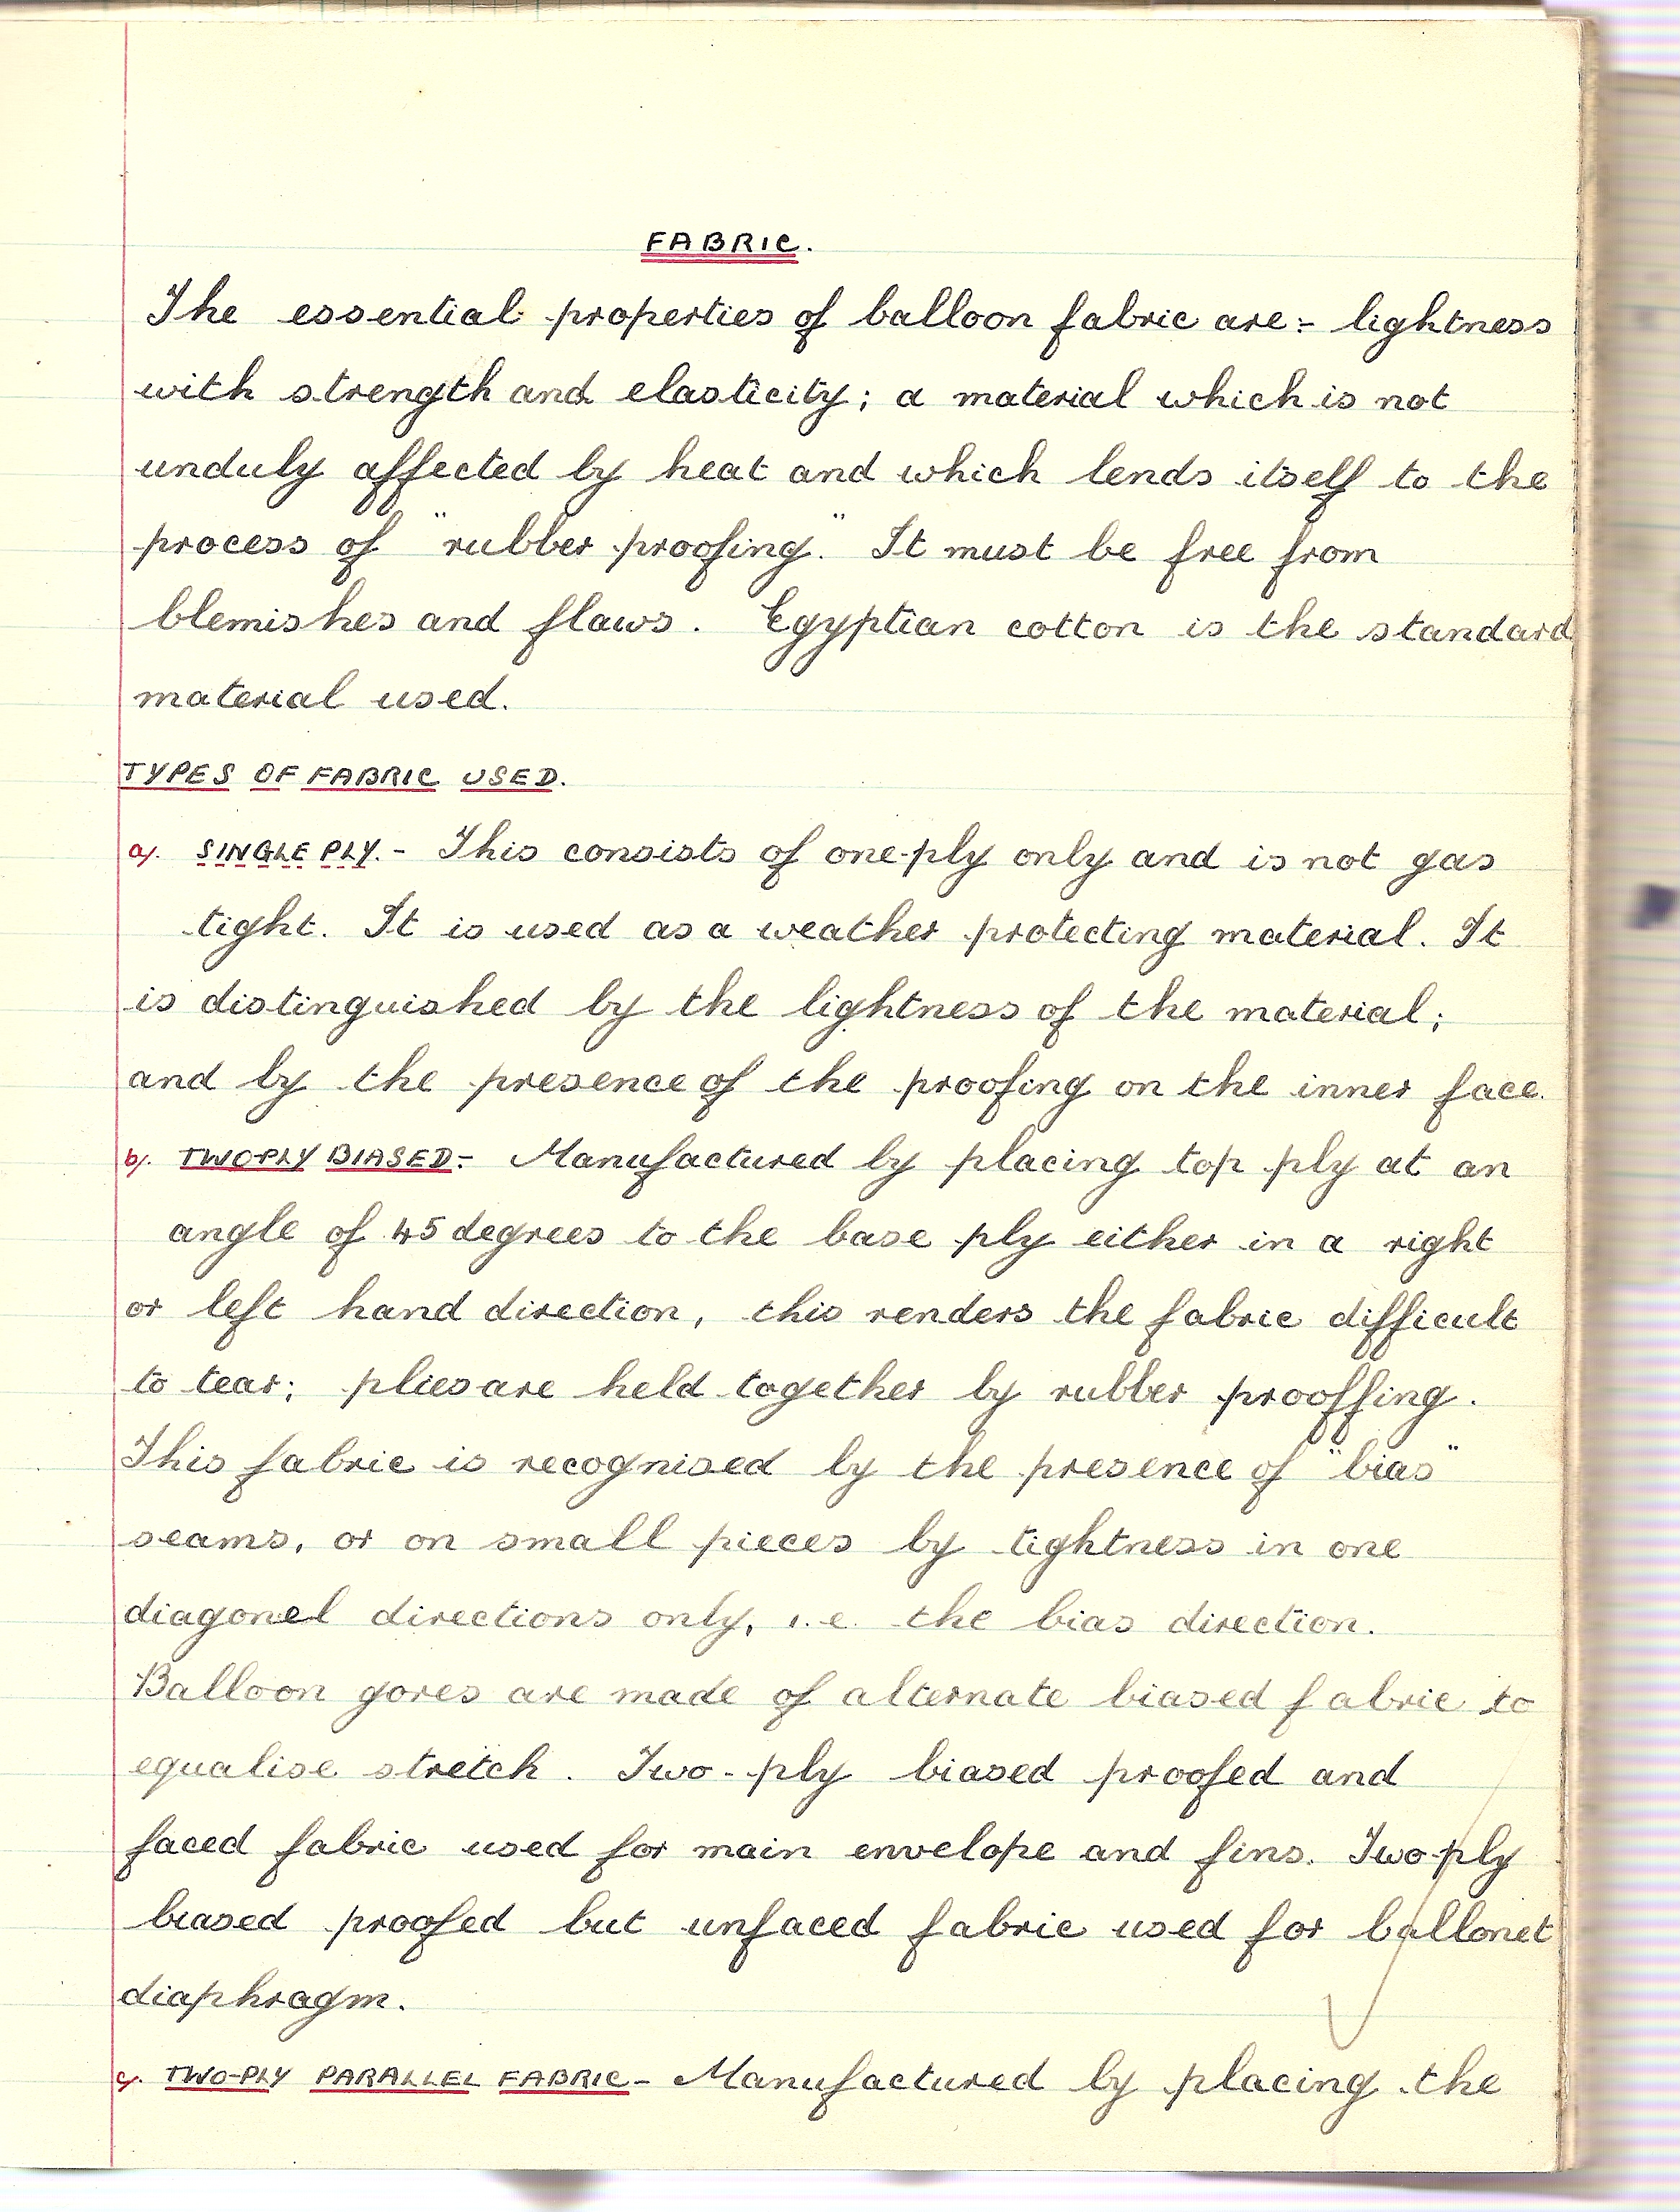 FABRIC.
The essential properties of balloon fabric are:- lightness
with strength and elasticity; a material which is not
unduly affected by heat and which lends itself to the
process of "rubber proofing." It must be free from
blemishes and flaws. Egyptian cotton is the standard
material used.
TYPES OF FABRIC USED.
a). SINGLE PLY. - This consists of one-ply only and is not gas
tight. It is used as a weather protecting material. It
is distinguished by the lightness of the material;
and by the presence of the proofing on the inner face.
b). TWO-PLY BIASED:- Manufactured by placing top ply at an
angle of 45 degrees to the base ply either in a right
or left hand direction, this renders the fabric difficult
to tear; plies are held together by rubber prooffing.
This fabric is recognised by the presence of "bias"
seams, or on small pieces by tightness in one
diagonel directions only, i.e. the bias direction.
Balloon gores are made of alternate biased fabric to
equalise stretch. Two-ply biased proofed and
faced fabric used for main envelope and fins. Two-ply
biased proofed but unfaced fabric used for ballonet
diaphragm.
c). TWO-PLY PARALLEL FABRIC - Manufactured by placing the